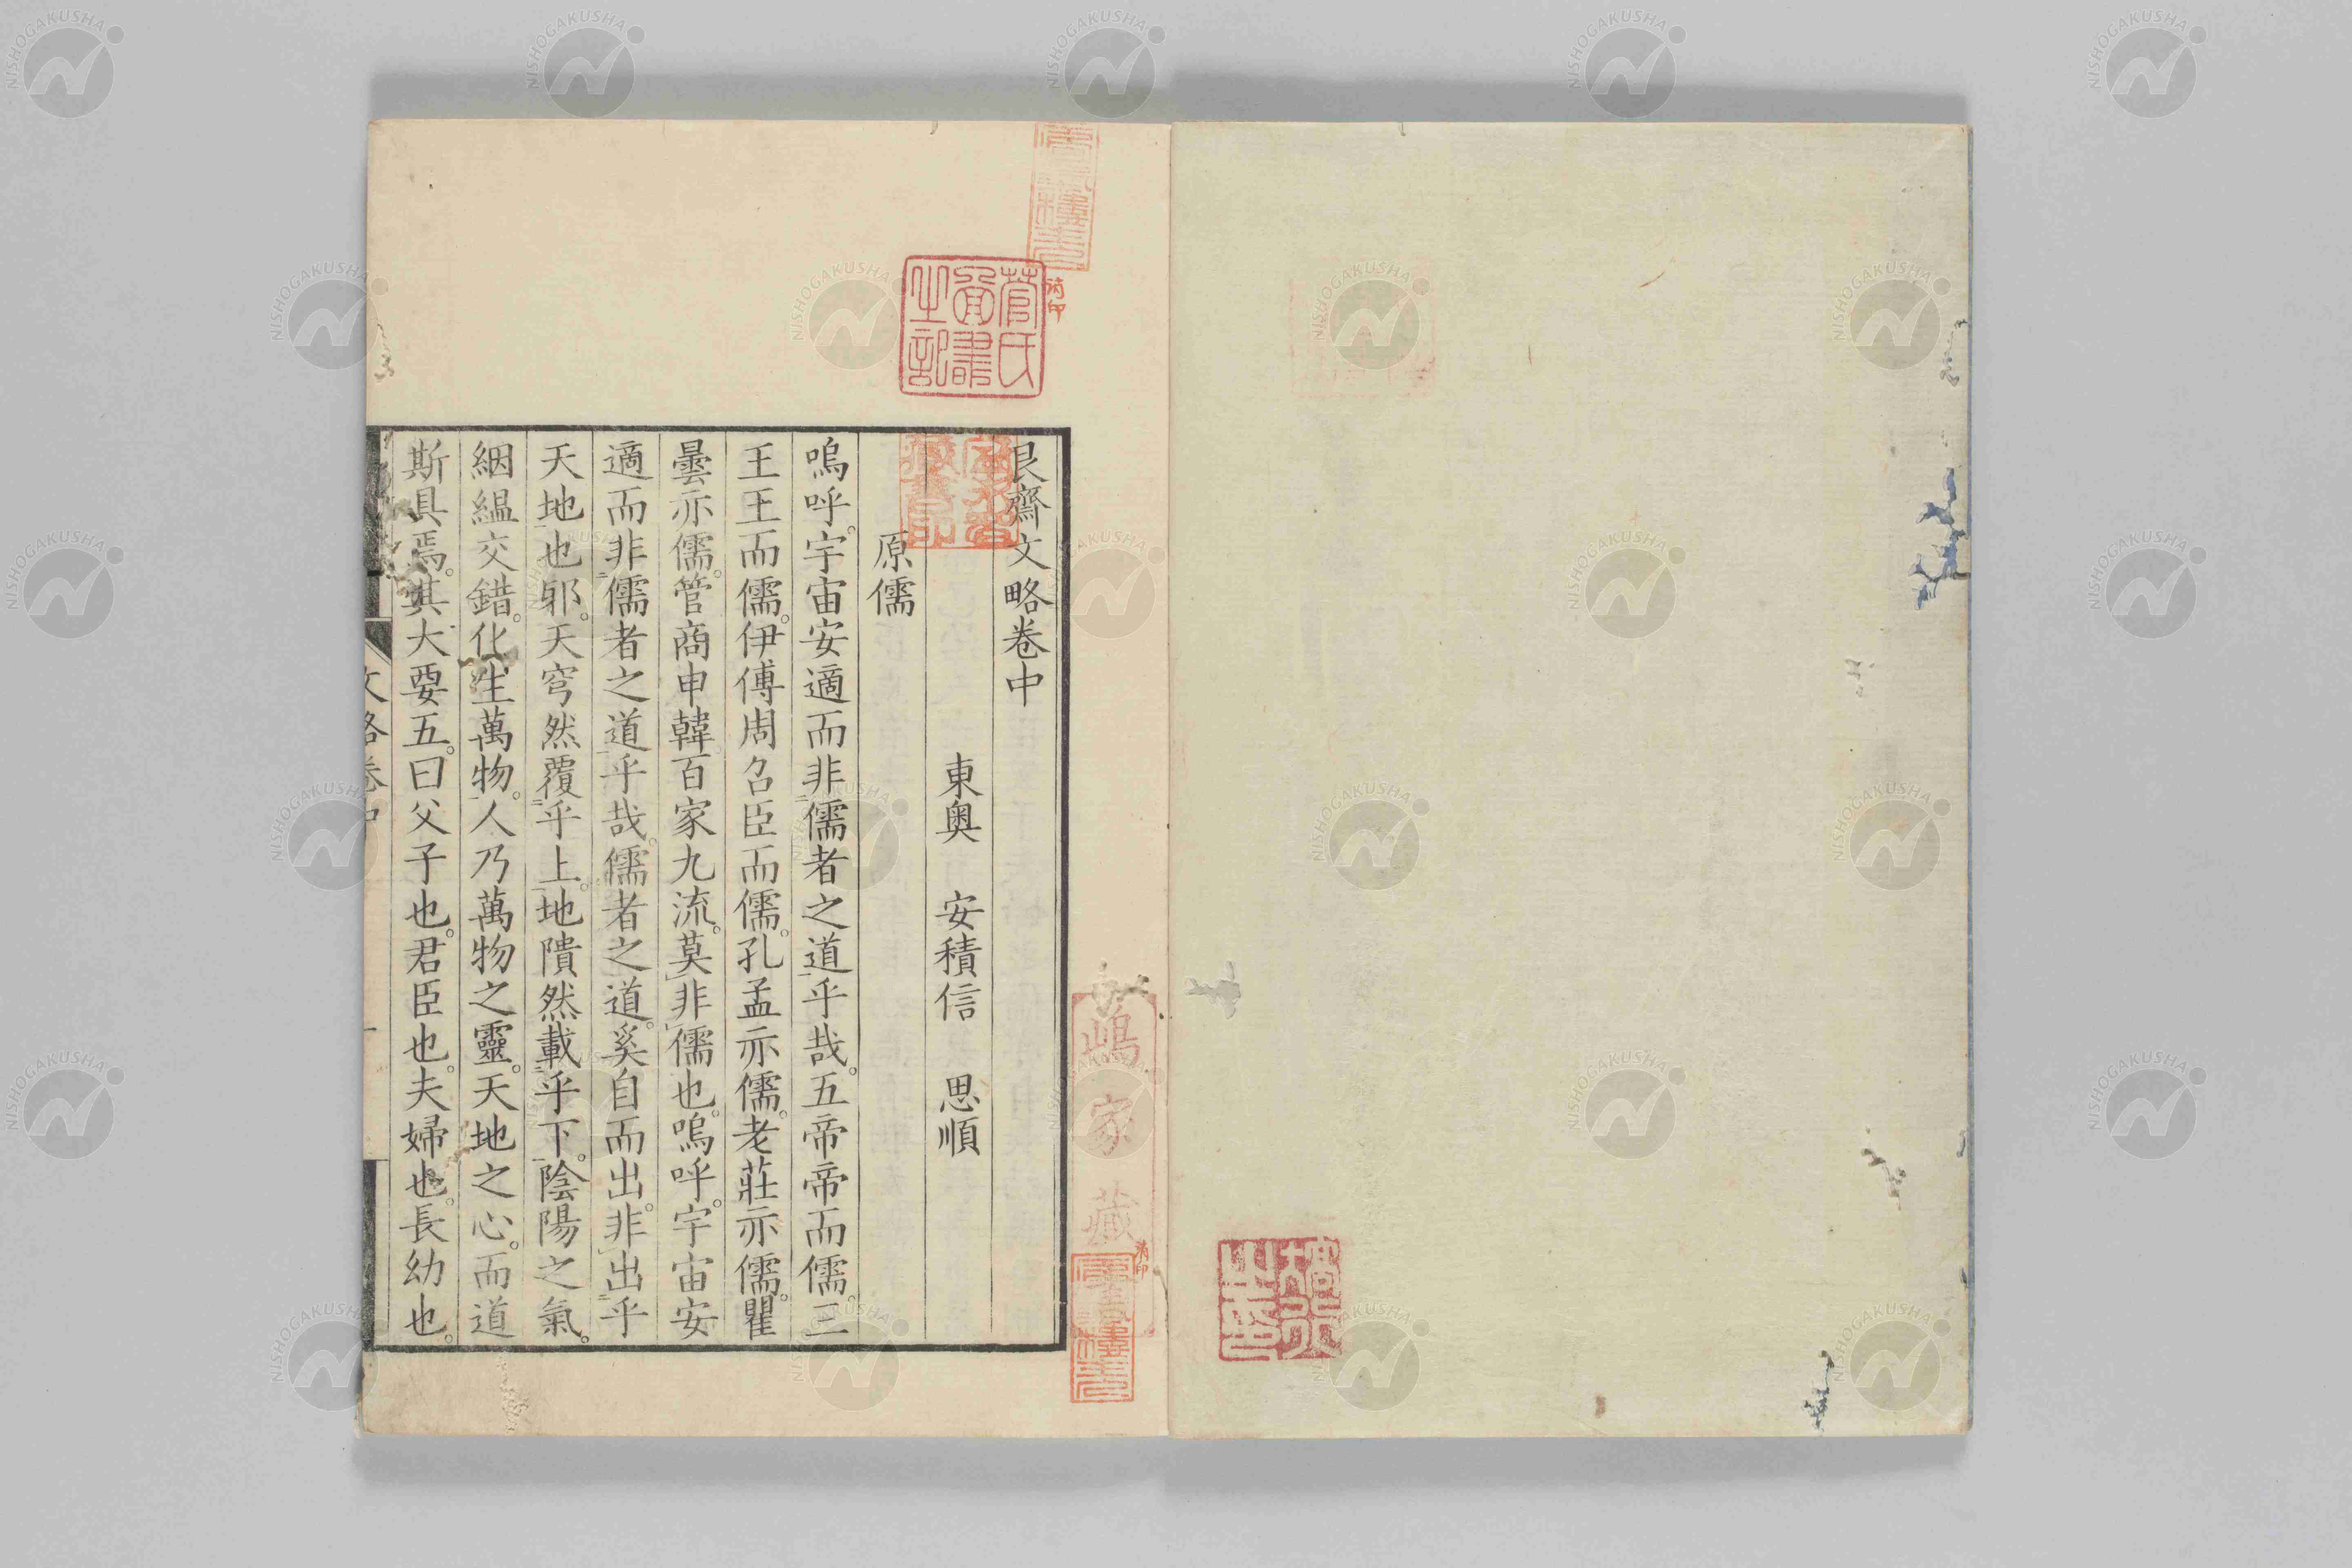 艮齋文略卷中
東奧　安積信　思順
原儒
嗚呼。宇宙安適而非儒者之道乎哉。五帝帝而儒。三
王王而儒。伊傅周召臣而儒。孔孟亦儒。老莊亦儒。瞿
曇亦儒。管商申韓百家九流。莫非儒也。嗚呼。宇宙安
適而非儒者之道乎哉。儒者之道。奚自而出。非出乎
天地也郍。天穹然覆乎上。地隤然載乎下。陰陽之氣。
絪縕交錯。化生萬物。人乃萬物之靈。天地之心。而道
斯具焉。其大要五。曰父子也。君臣也。夫婦也。長幼也。
文略卷中
一
菅氏
圖書
之記
嶋家藏
消印
消印
NISHOGAKUSHA